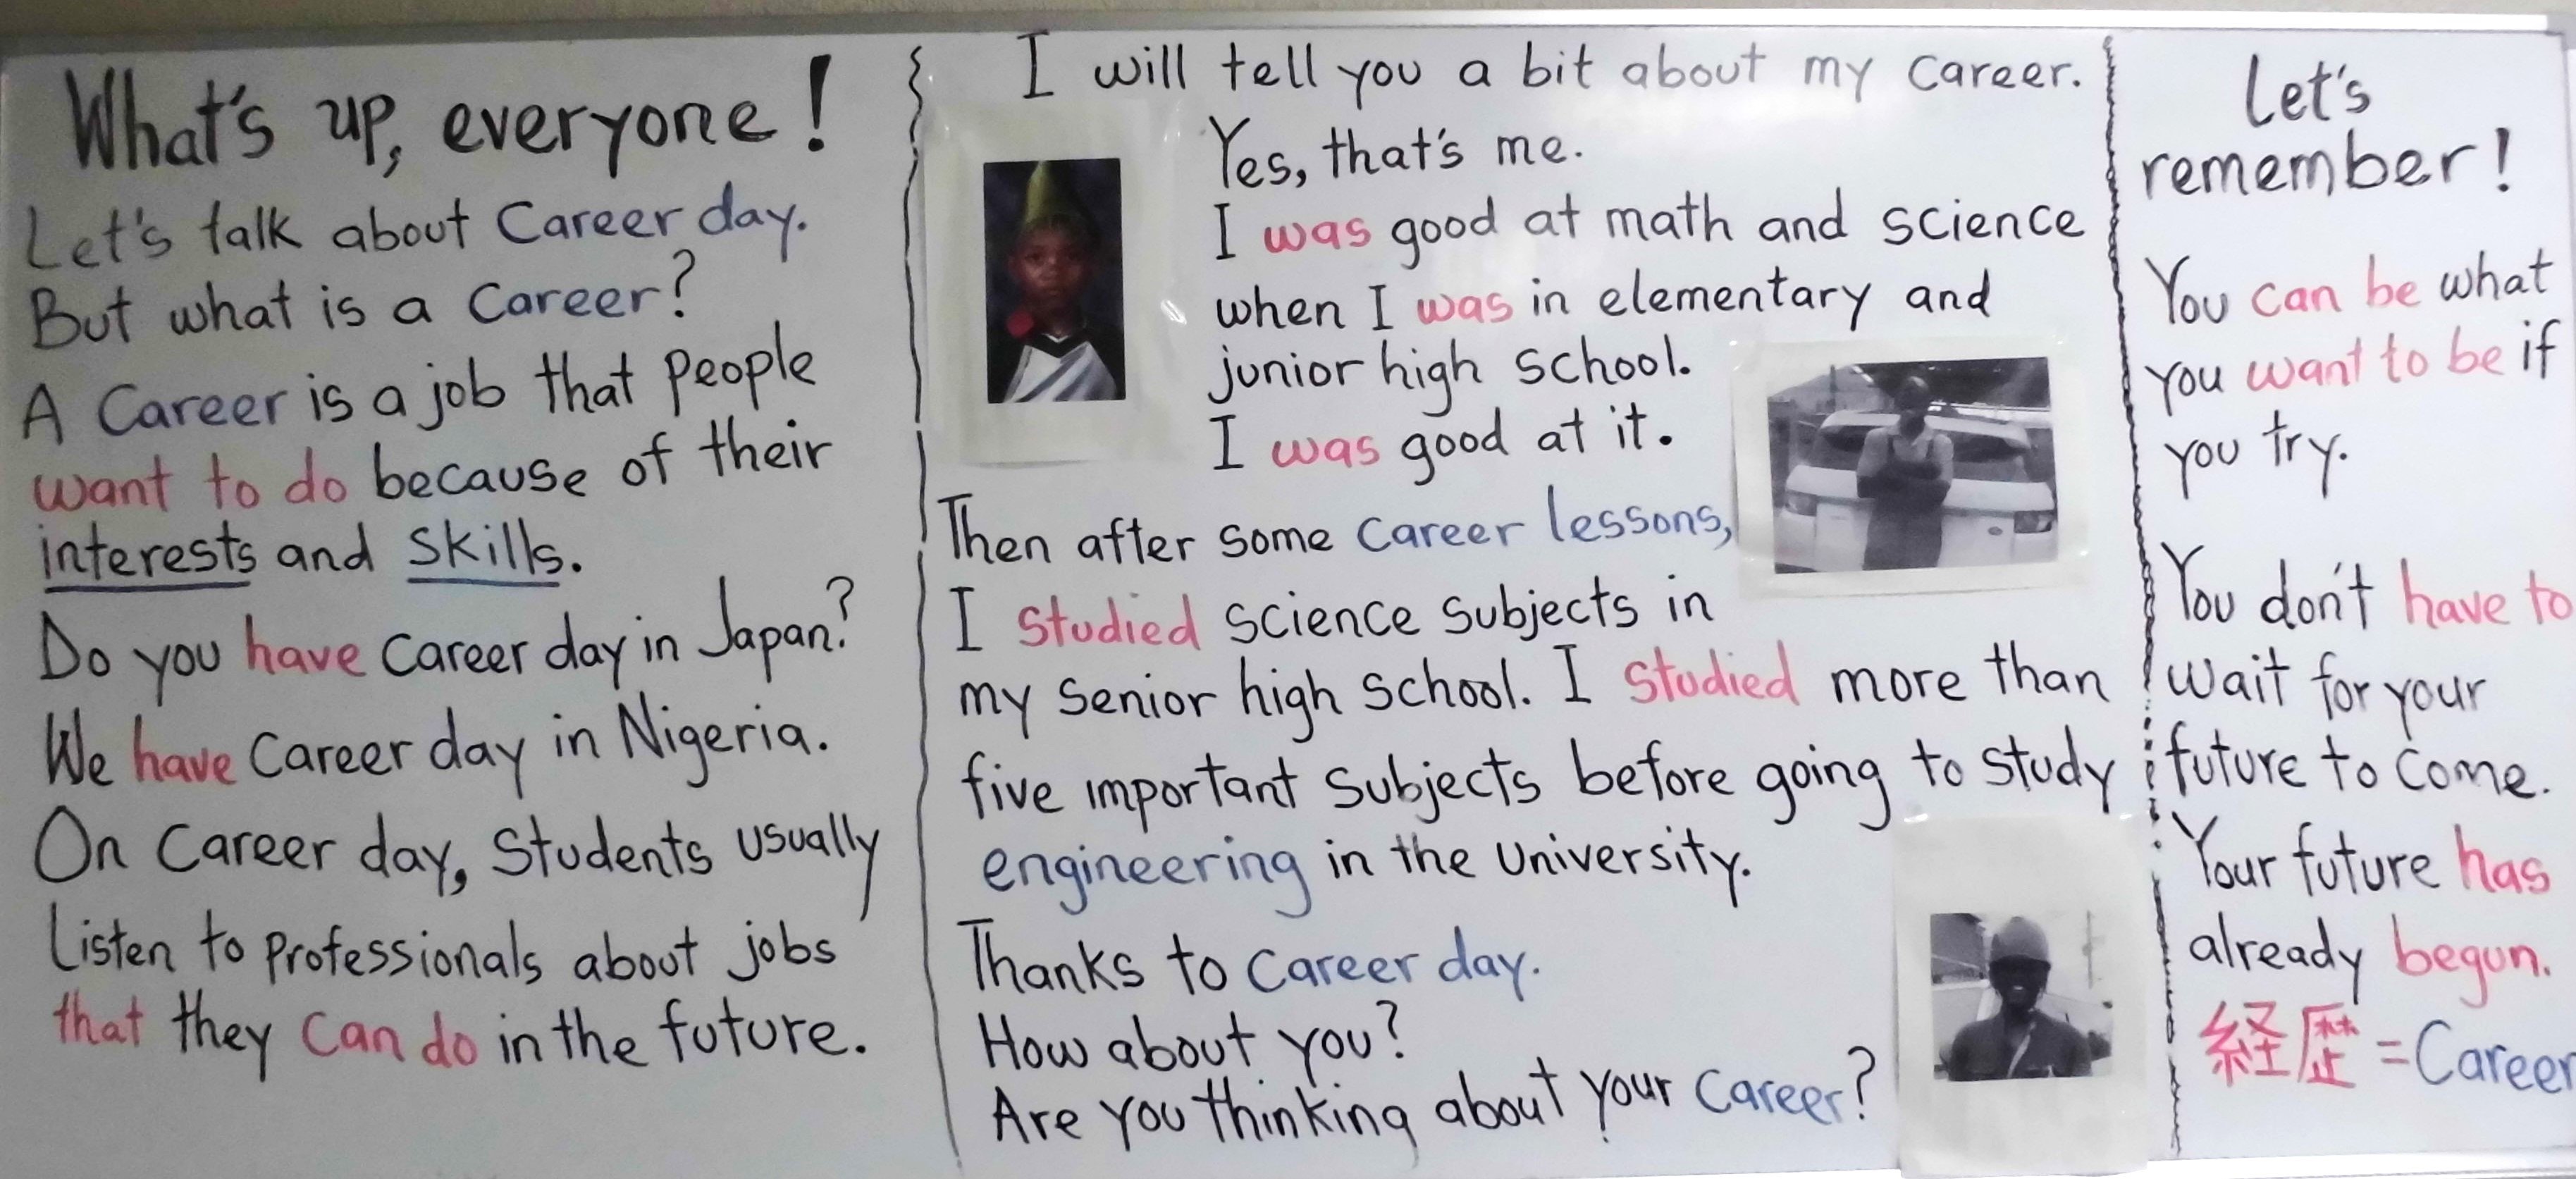 What's up, everyone!
Let's talk about Career day.
But what is a Career?
A Career is a job that people
want to do because of their
interests and skills.
Do you have Career day in Japan?
We have Career day in Nigeria.
On Career day, Students usually
Listen to professionals about jobs
that they can do in the future.
I will tell you a bit about my career.
Yes, that's me.
I was good at math and science
when I was in elementary and
junior high school.
I was good at it.
Then after some Career lessons,
I studied science subjects in
my senior high school. I studied more than
five important subjects before going to study
engineering in the University.
Thanks to Career day.
How about you?
Are you thinking about your Career?
Let's
remember!
You can be what
you want to be if
you try.
You don't have to
wait for your
future to come.
Your future has
already begun.
経歴 = Career